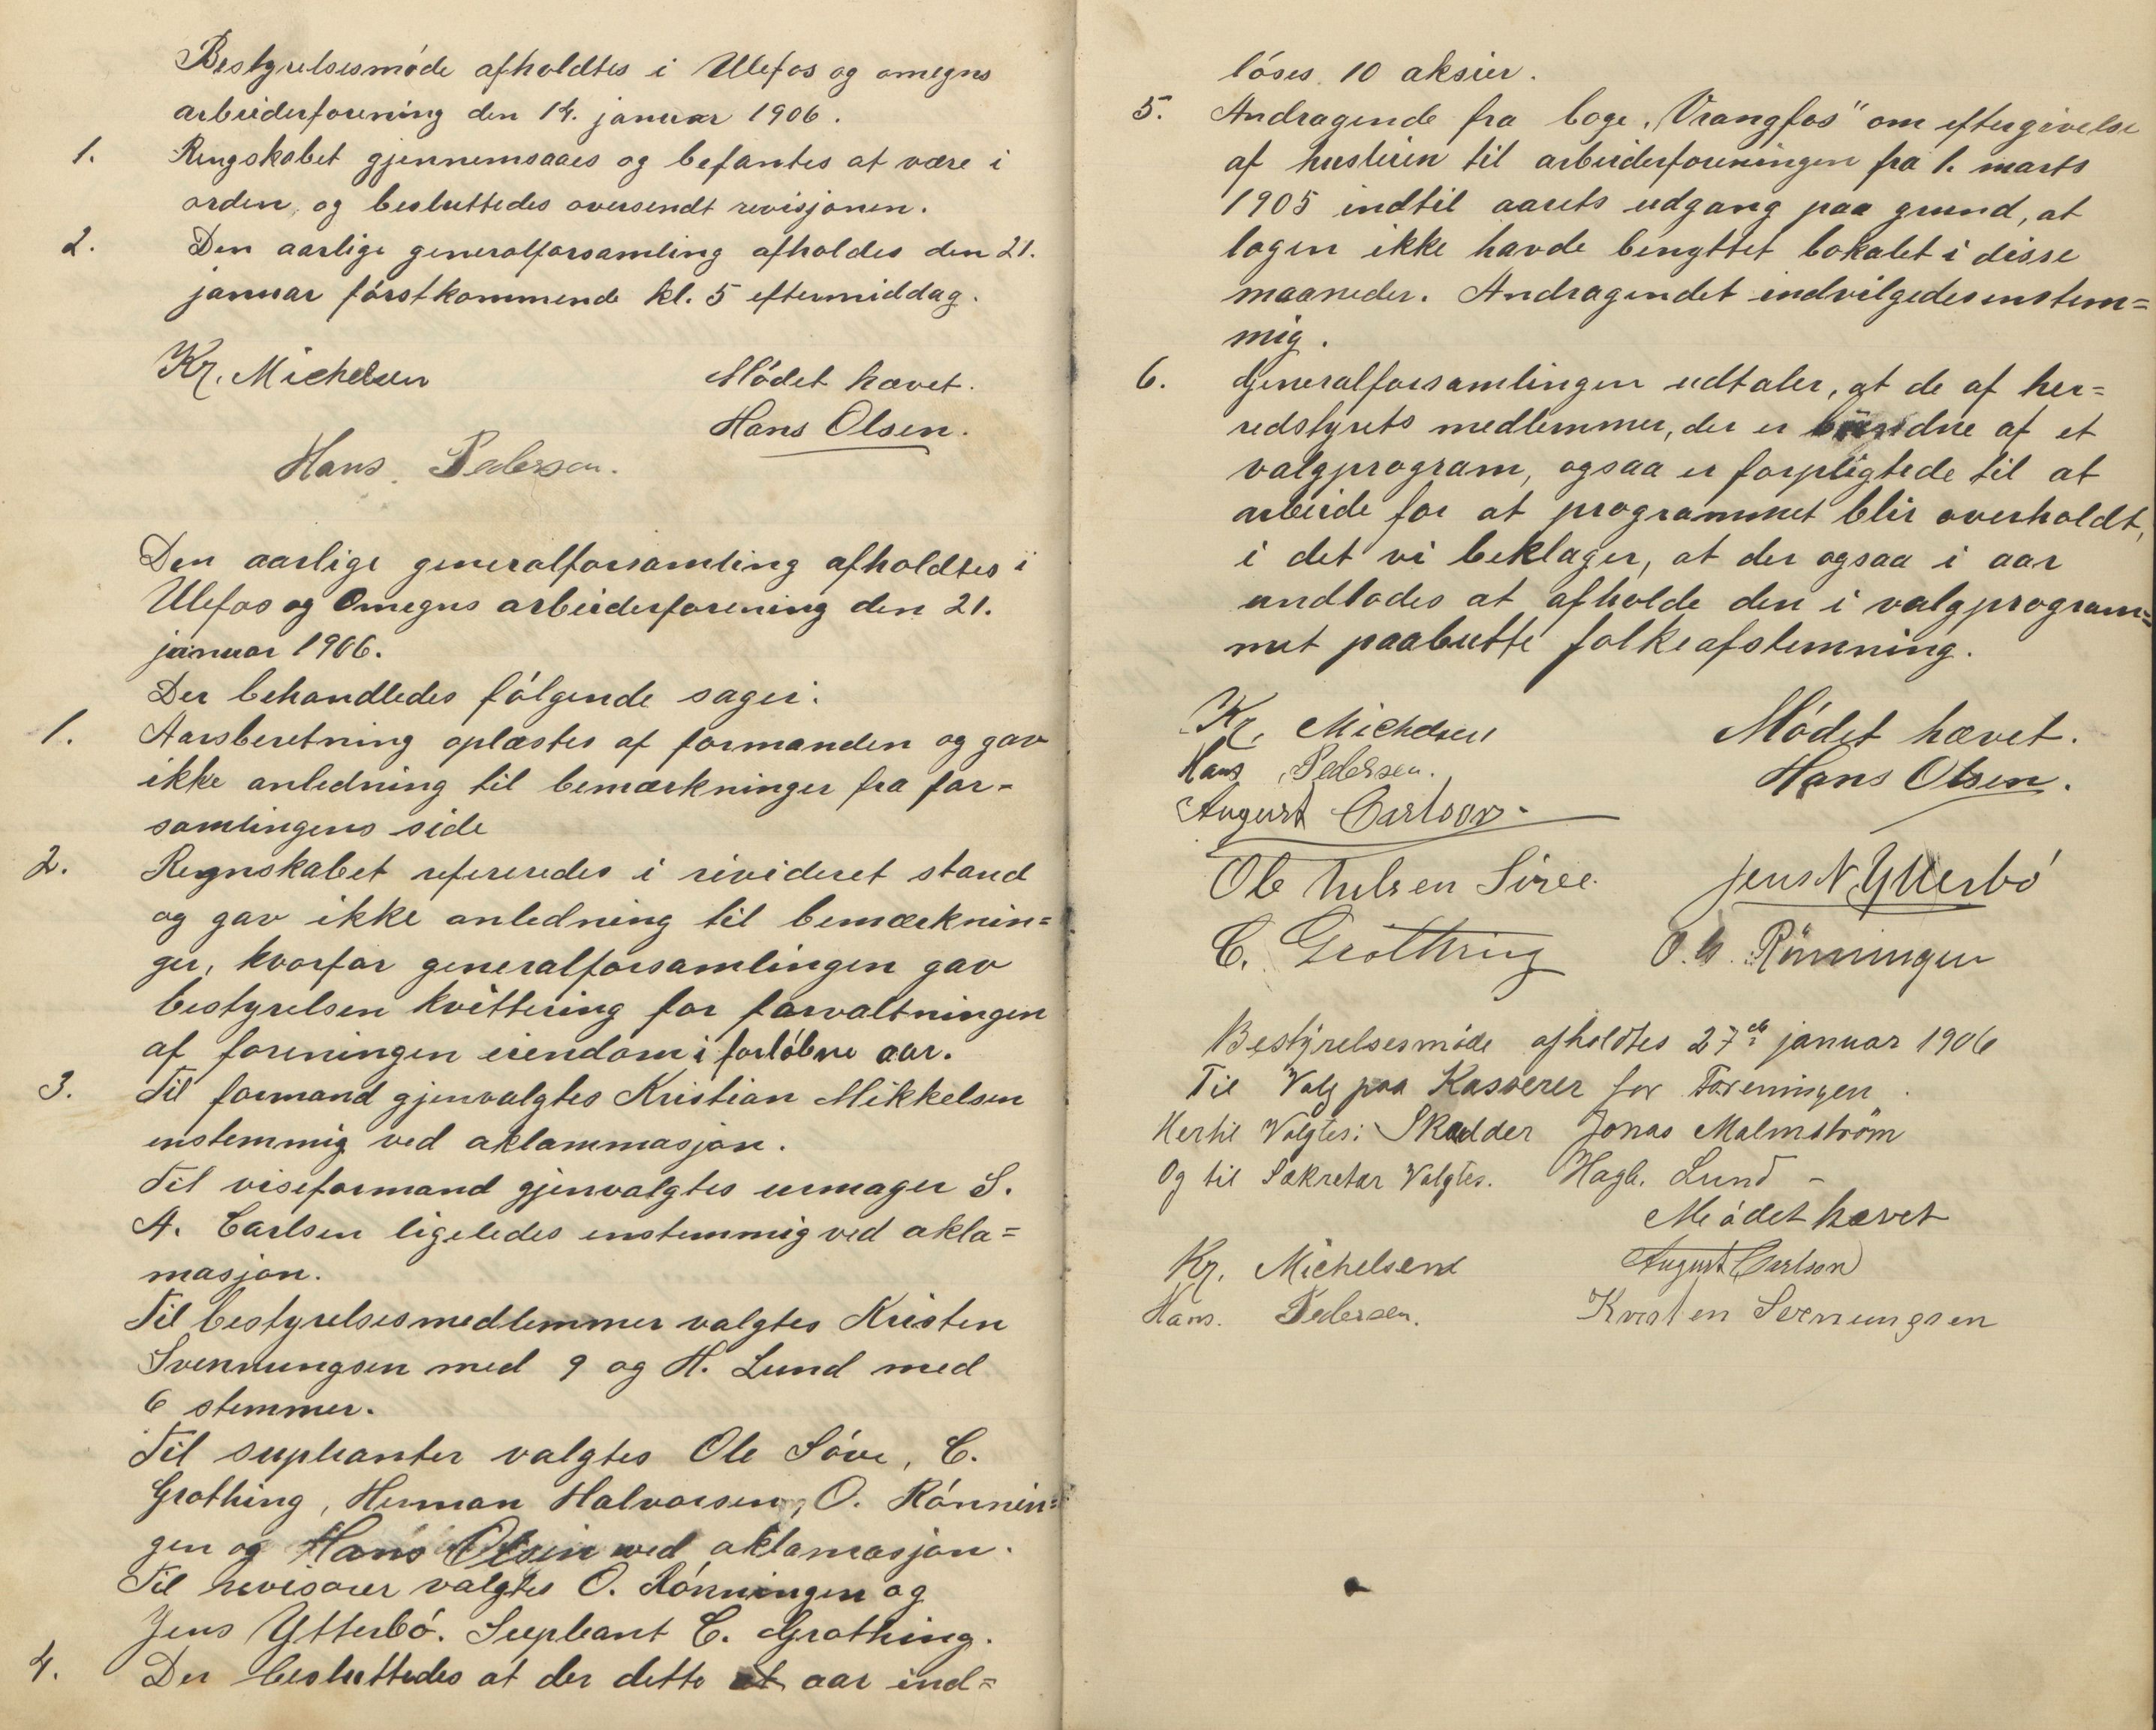 Bestyrelsesmøde afholdtes i Ulefos og omegns
arbeiderforening den 14. januar 1906.
1. Rengskabet gjennemsaaes og befantes at være i
orden, og besluttedes oversendt revisjonen.
2. Den aarlige generalforsamling afholdes den 21.
januar førstkommende kl. 5 eftermiddag.
Kr. Michelsen Mødet hævet.
Hans Olsen.
Hans Pedersen.
Den aarlige generalforsamling afholdtes i
Ulefos og Omegns arbeiderforening den 21.
januar 1906.
Der behandledes følgende sager:
1. Aarsberetning oplæstes af formanden og gav
ikke anledning til bemærkninger fra for-
samlingens side
2. Regnskabet refereredes i revideret stand
og gav ikke anledning til bemærknin=
ger, hvorfor generalforsamlingen gav
bestyrelsen kvittering for forvaltningen
af foreningen eiendom i forløbne aar.
3. Til formand gjenvalgtes Kristian Mikkelsen
enstemmig ved aklammasjon.
Til viseformand gjenvalgtes urmager S.
A. Carlsen ligeledes enstemmig ved akla=
masjon.
Til bestyrelsesmedlemmer valgtes Kristen
Svennungsen med 9 og H. Lund med
6 stemmer.
Til supleanter valgtes Ole Søve, C.
Grothing, Herman Halvorsen, O. Rønnin=
gen og Hans Olsen ved aklamasjon.
Til revisorer valgtes O. Rønningen og
Jens Ytterbø. Supleant C. Grothing.
4. Der besluttedes at der dette aar ind=
løses 10 aksier.
5. Andragende fra loge "Vrangfos" om eftergivelse
af husleien til arbeiderforeningen fra 1. marts
1905 indtil aarets udgang paa grund, at
logen ikke havde benyttet lokalet i disse
maaneder. Andragendet indvilgedes enstem=
mig.
6. Generalforsamlingen udtaler, at de af her=
redstyrets medlemmer, der er bundne af et
valgprogram, ogsaa er forpligtede til at
arbeide for at programmet blir overholdt,
i det vi beklager, at der ogsaa i aar
undlodes at afholde den i valgprogram=
met paabutte folkeafstemning.
Kr. Michelsen Mødet hævet.
Hans Pedersen. Hans Olsen.
August Carlson.
Ole Jens N Ytterbø
C. Grothring O. Rönningen
Bestyrelsesmøde afholdtes 27de januar 1906
Til Valg paa Kasserer for Foreningen.
Hertil Valgtes: Skrædder Jonas Malmström
Og til Sekretær Valgtes. Hagb. Lund –
Mødet hævet
Kr. Michelsen August Carlson
Hans. Pedersen. Kristen Svennungsen